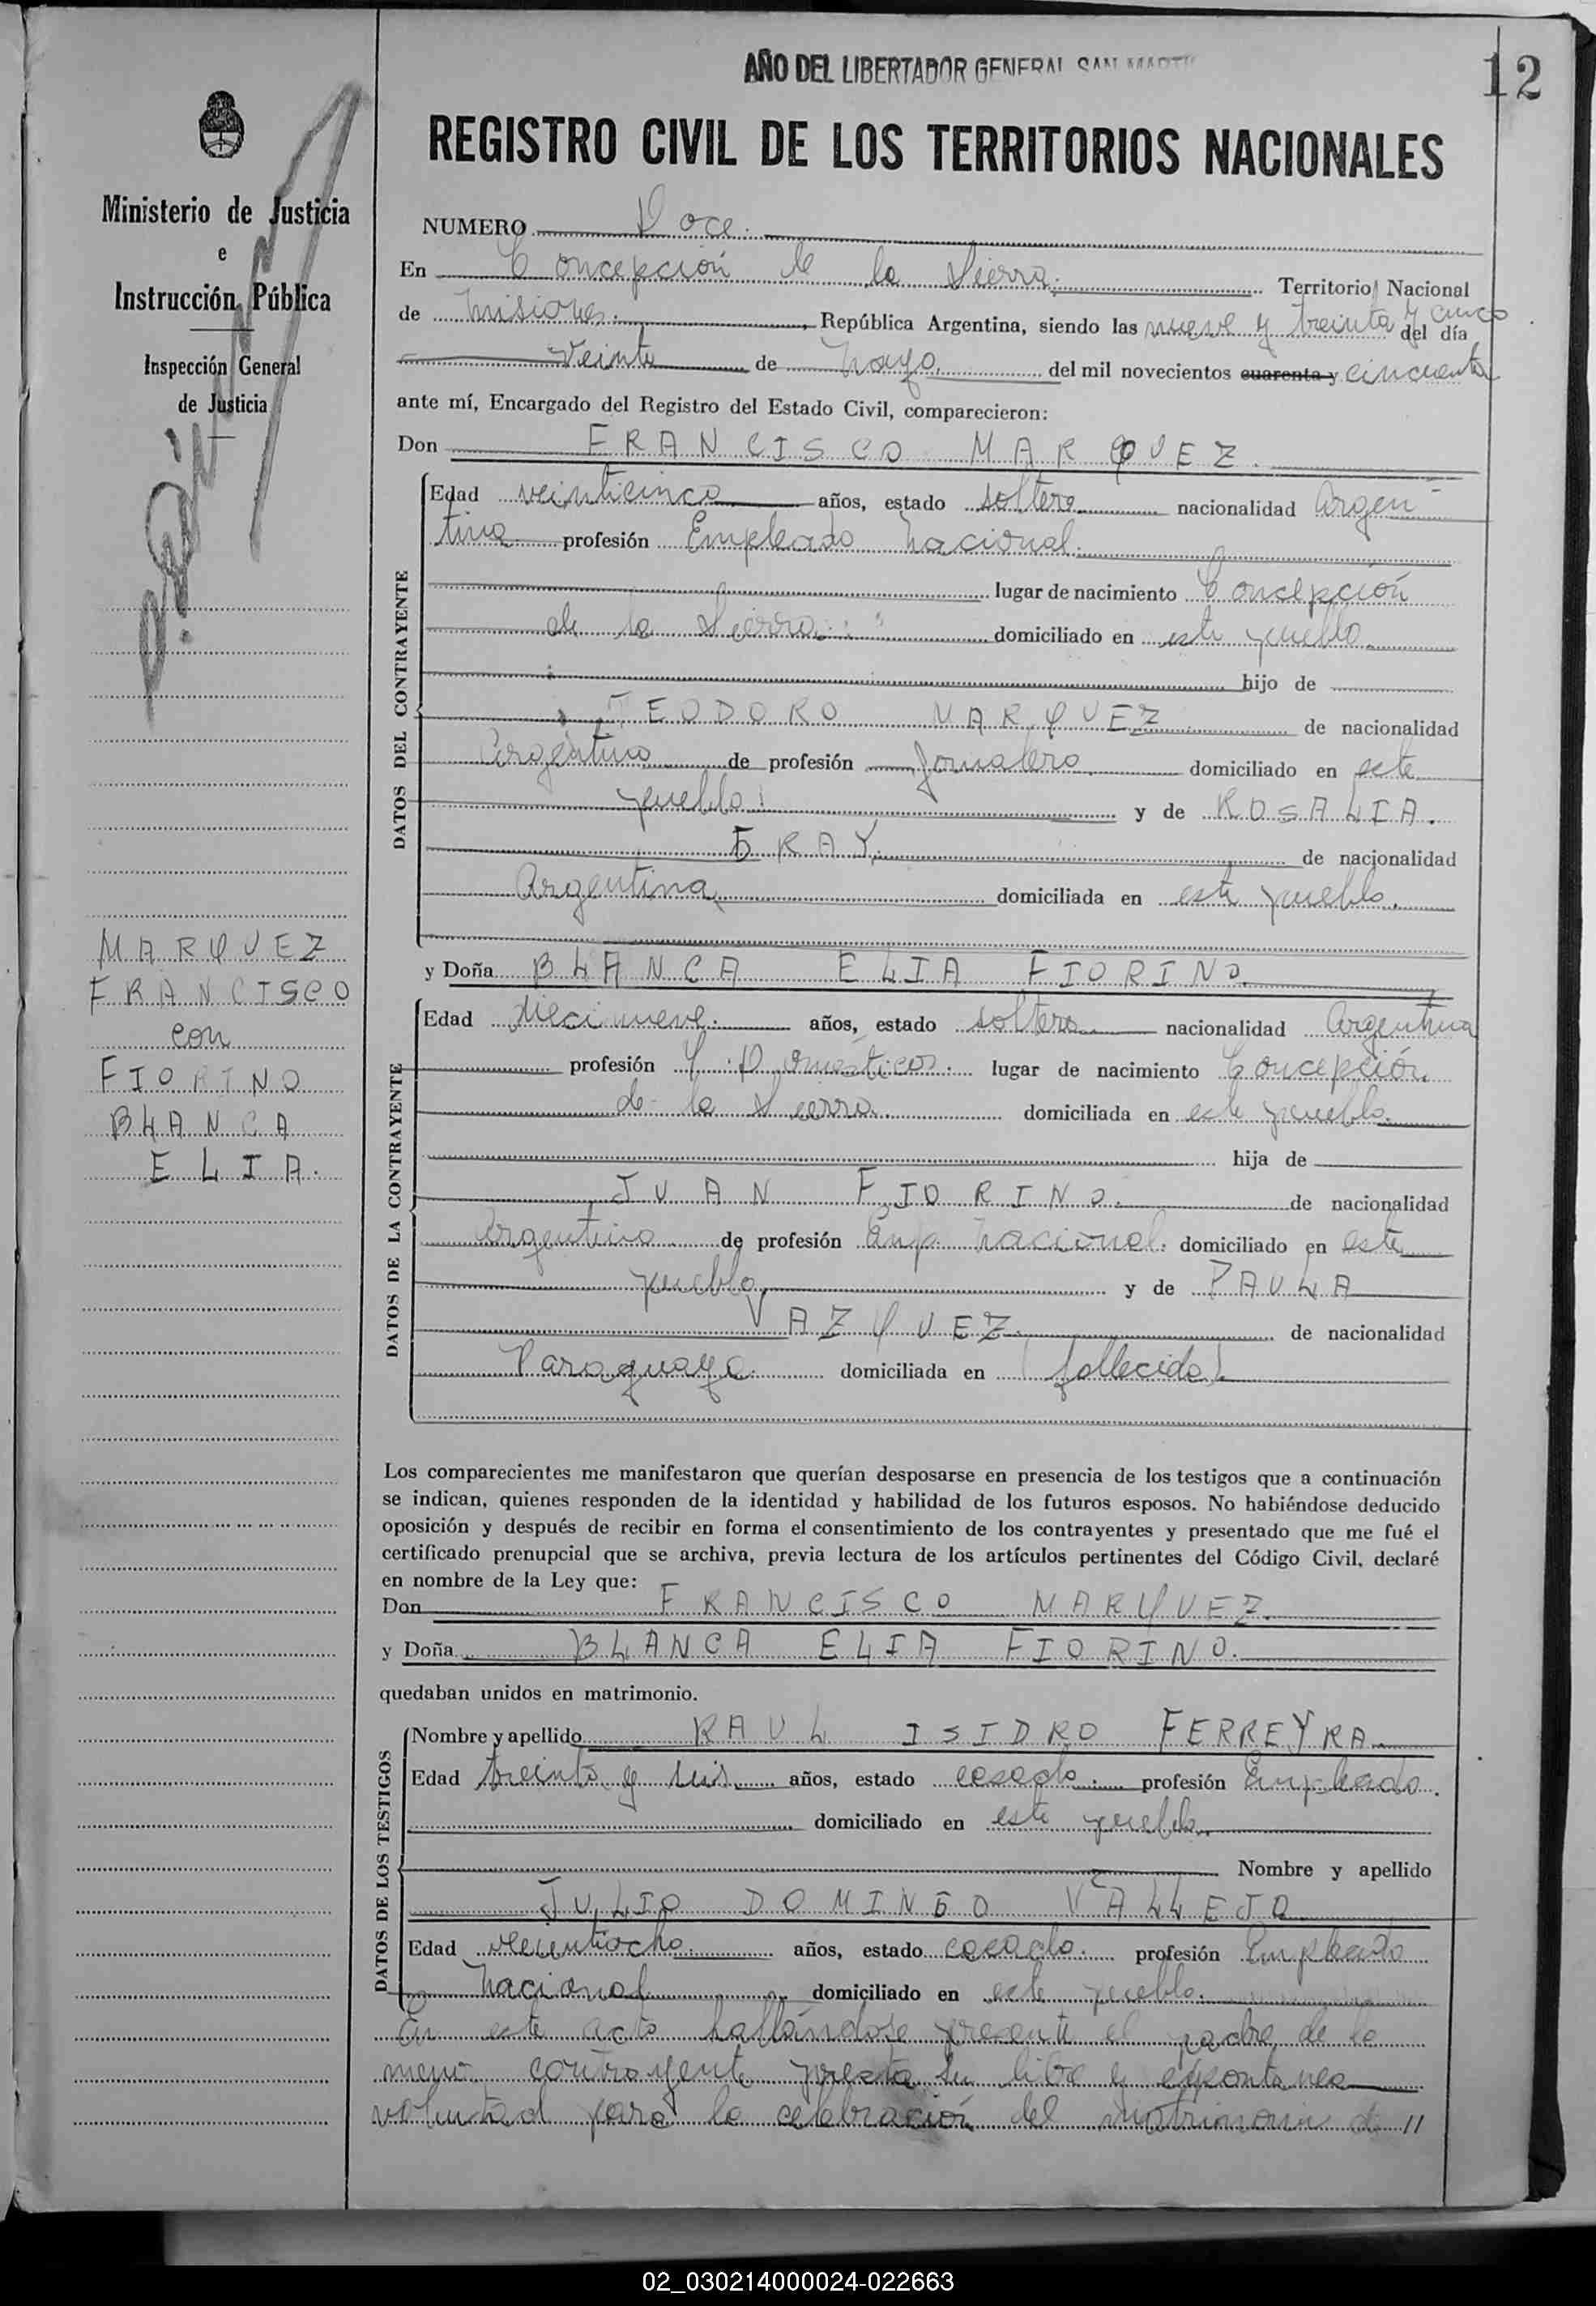 AÑO DEL LIBERTADOR GENERAL SAN MARTIN
12
REGISTRO CIVIL DE LOS TERRITORIOS NACIONALES
Ministerio de Justicia
e
Instrucción Pública
Inspección General
de Justicia
MARQUEZ
FRANCISCO
con
FIORINO
BLANCA
ELIA.
NUMERO Doce.
En Concepción de la Sierra. Territorio Nacional
de Misiones. , República Argentina, siendo las nueve y treinta y cinco del día
veinte de Mayo del mil novecientos cuarenta y cincuenta
ante mí, Encargado del Registro del Estado Civil, comparecieron:
Don FRANCISCO MARQUEZ.
DATOS DEL CONTRAYENTE
Edad veinticinco años, estado soltero nacionalidad Argen-
tina profesión Empleado Nacional.
lugar de nacimiento Concepción
de la Sierra domiciliado en este pueblo
hijo de
TEODORO MARQUEZ de nacionalidad
Argentino de profesión Jornalero domiciliado en este
pueblo y de ROSALIA.
GRAY de nacionalidad
Argentina domiciliada en este pueblo.
y Doña BLANCA ELIA FIORINO.
DATOS DE LA CONTRAYENTE
Edad diecinueve. años, estado soltera nacionalidad Argentina
profesión Q. Domésticos. lugar de nacimiento Concepción
de la Sierra domiciliada en este pueblo.
hija de
JUAN FIORINO. de nacionalidad
Argentino de profesión Emp. Nacional. domiciliado en este
pueblo y de PAULA
VAZQUEZ. de nacionalidad
Paraguaya domiciliada en (fallecida).
Los comparecientes me manifestaron que querían desposarse en presencia de los testigos que a continuación
se indican, quienes responden de la identidad y habilidad de los futuros esposos. No habiéndose deducido
oposición y después de recibir en forma el consentimiento de los contrayentes y presentado que me fué el
certificado prenupcial que se archiva, previa lectura de los artículos pertinentes del Código Civil, declaré
en nombre de la Ley que:
Don FRANCISCO MARQUEZ.
y Doña BLANCA ELIA FIORINO.
quedaban unidos en matrimonio.
DATOS DE LOS TESTIGOS
Nombre y apellido RAUL ISIDRO FERREYRA.
Edad treinta y seis años, estado casado. profesión Empleado.
domiciliado en este pueblo.
Nombre y apellido
JULIO DOMINGO VALLEJO
Edad veintiocho. años, estado casado. profesión Empleado
Nacional domiciliado en este pueblo.
En este acto hallándose presente el padre de la
menor contrayente presta su libre y espontanea
voluntad para la celebración del matrimonio de //
02_030214000024-022663